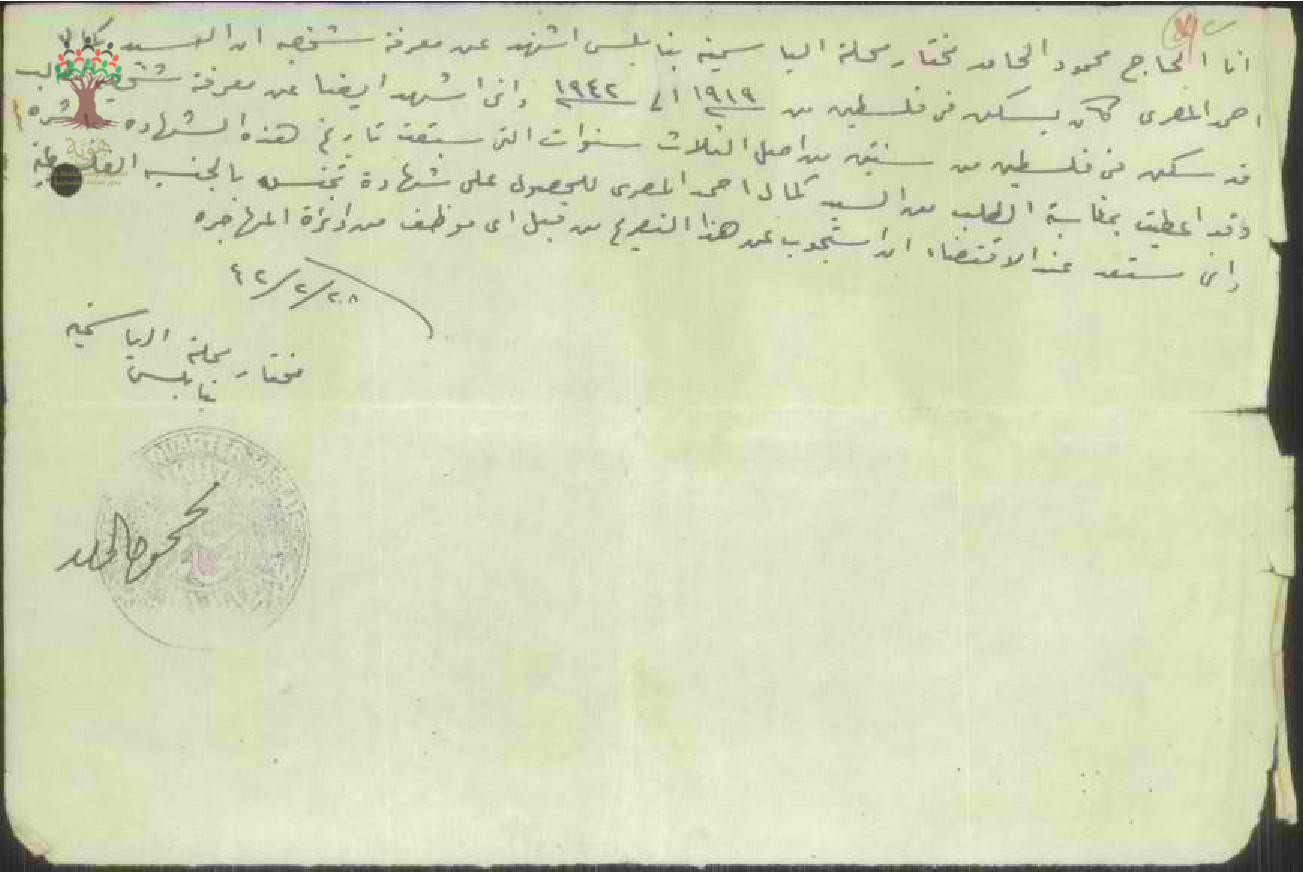 انا الحاج محمود الحامد مختار محلة الياسمينة بنابلس اشهد عن معرفة شخصيه ان السيد كمال
احمد المصرى كان يسكن فى فلسطين من ١٩١٩ الى ١٩٤٢ وانى اشهد ايضا عن معرفة
قد سكن فى فلسطين من سنتين من اصل الثلاث سنوات التى سبقت تاريخ هذه الشهاده
وقد اعطيت بمناسبة الطلب من السيد كمال احمد المصرى للحصول على شهادة تجنس بالجنسيه الفلسطينية
وانى مستعد عند الاقتضاء ان استجوب عن هذا التصريح من قبل اى موظف من دائرة المهاجره
٤٢/٢/٢٨
مختار محلة الياسمينه
نابلس
محمود الحامد
هوية